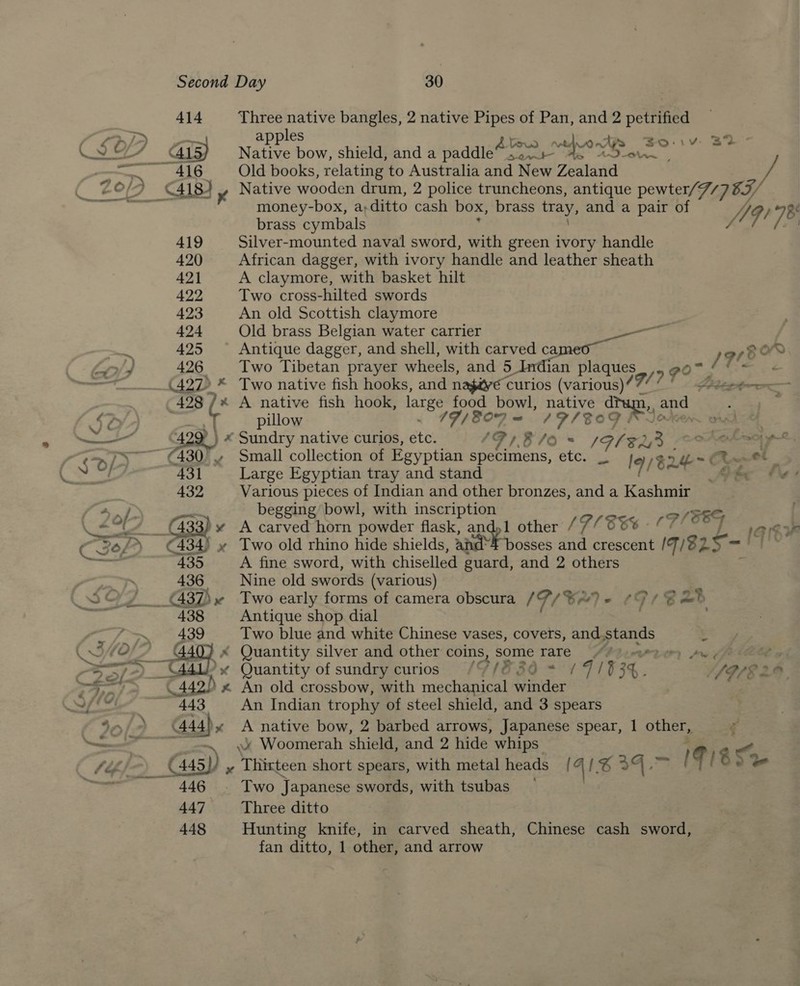 Second Day 30
414 Three native bangles, 2 native Pipes of Pan, and 2 petrified
apples
50/- 415 Native bow, shield, and a paddle
416 Old books, relating to Australia and New Zealand
20/- 418 Native wooden drum, 2 police truncheons, antique pewter
money-box, a ditto cash box, brass tray, and a pair of
brass cymbals
419 Silver-mounted naval sword, with green ivory handle
420 African dagger, with ivory handle and leather sheath
421 A claymore, with basket hilt
422 Two cross-hilted swords
423 An old Scottish claymore
424 Old brass Belgian water carrier
425 Antique dagger, and shell, with carved cameo
60/- 426 Two Tibetan prayer wheels, and 5 Indian plaques
427 × Two native fish hooks, and native curios (various)
428 × A native fish hook, large food bowl, native drum, and
50/- pillow 19/1807 = 19/1809
429 × Sundry native curios, etc. 19/1810 = 19/1823
50/- 430 Small collection of Egyptian specimens, etc. 19/1824
431 Large Egyptian tray and stand
432 Various pieces of Indian and other bronzes, and a Kashmir
begging bowl, with inscription
20/- 433 × A carved horn powder flask, and 1 other
30/- 434 × Two old rhino hide shields, and 4 bosses and crescent 19/1825 =
435 A fine sword, with chiselled guard, and 2 others
436 Nine old swords (various)
50/- 437 × Two early forms of camera obscura 19/1827 = 19/1828
438 Antique shop dial
439 Two blue and white Chinese vases, covers, and stands
440 × Quantity silver and other coins, some rare
20/- 441 × Quantity of sundry curios 19/1830 = 19/1834. 19/1829
442 × An old crossbow, with mechanical winder
443 An Indian trophy of steel shield, and 3 spears
444 × A native bow, 2 barbed arrows, Japanese spear, 1 other,
× Woomerah shield, and 2 hide whips
445 × Thirteen short spears, with metal heads 19/1839 = 19/185
446 Two Japanese swords, with tsubas
447 Three ditto
448 Hunting knife, in carved sheath, Chinese cash sword,
fan ditto, 1 other, and arrow